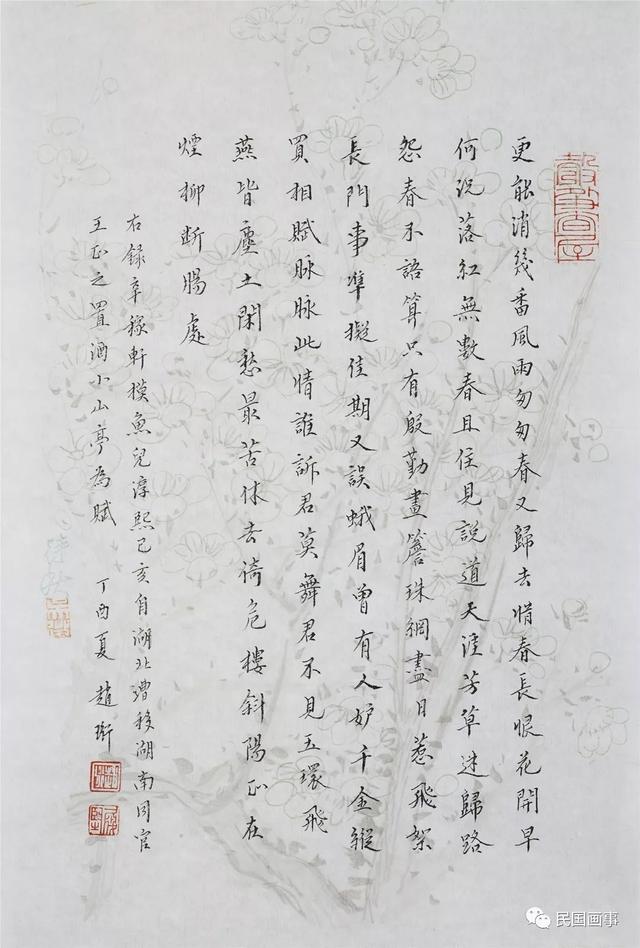 更能消幾番風雨匆匆春又歸去惜春長恨花開早
何況落紅無數春且住見說道天涯芳草迷歸路
怨春不語算只有殷勤畫簷珠網盡日惹飛絮
長門事準擬佳期又誤蛾眉曾有人妒千金縱
買相賦脉脉此情誰訴君莫舞君不見玉環飛
燕皆塵土閑愁最苦休去倚危樓斜陽正在
煙柳斷腸處
右錄辛稼軒摸魚兒淳熙己亥自湖北漕移湖南同官
王正之置酒小山亭為賦 丁酉夏 趙珩
民国画事